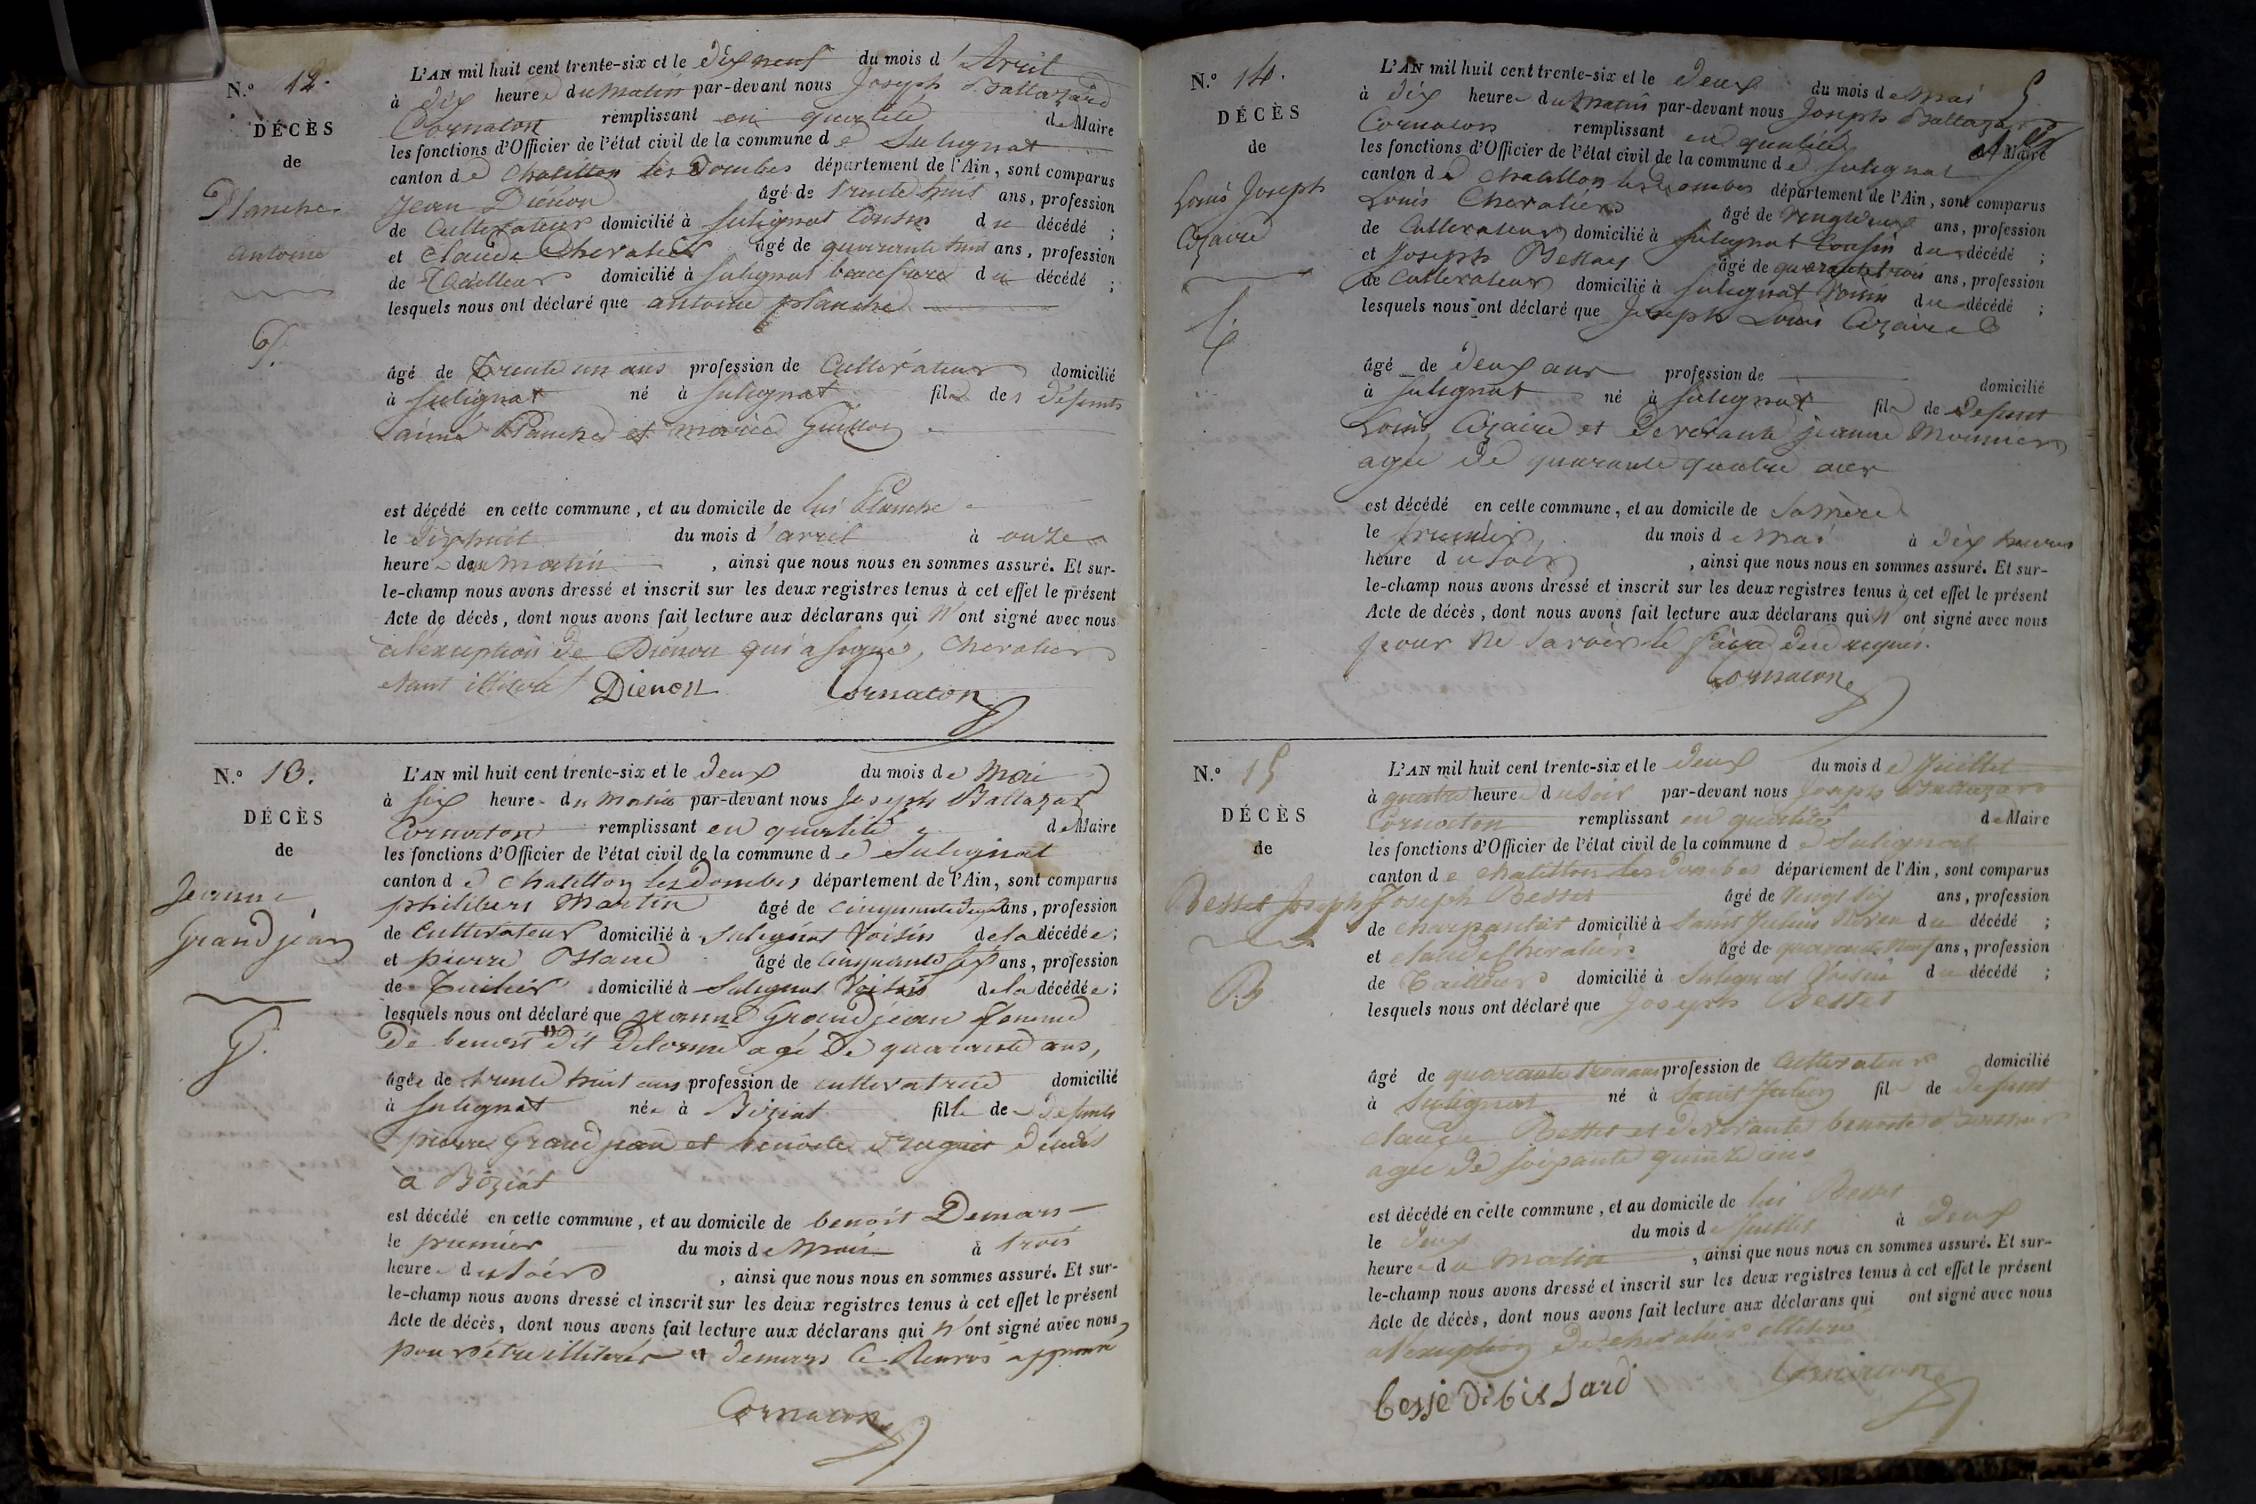 N.° 12.
DÉCÈS
de
Planche
antoine
P.
L'AN mil huit cent trente-six et le dixneuf du mois d'Avril
à dix heures du matin par-devant nous Joseph Baltazard
Cornaton remplissant en qualité de Maire
les fonctions d'Officier de l'état civil de la commune de Sulignat
canton de Chatillon les Dombes département de l'Ain, sont comparus
Jean Diénon âgé de trente huit ans, profession
de Cultivateur domicilié à Sulignat Cousin du décédé ;
et Claude Chevalier âgé de quarante huit ans, profession
de Tailleur domicilié à Sulignat beaufrere du décédé ;
lesquels nous ont déclaré que antoine planche
âgé de Trente un ans profession de Cultivateur domicilié
à Sulignat né à Sulignat fils des défunts
Planche et marie Guillon
est décédé en cette commune, et au domicile de lui Planche
le dixhuit du mois d'avril à onze
heures du matin, ainsi que nous nous en sommes assuré. Et sur-
le-champ nous avons dressé et inscrit sur les deux registres tenus à cet effet le présent
Acte de décès, dont nous avons fait lecture aux déclarans qui n'ont signé avec nous
alexception de Diénon qui a signé, Chevalier
etant illiteré Dienon Cornaton
N.° 13.
DÉCÈS
de
Jeanne
Grandjean
G.
L'AN mil huit cent trente-six et le deux du mois de Mai
à six heures du matin par-devant nous Joseph Baltazar
Cornaton remplissant en qualité de Maire
les fonctions d'Officier de l'état civil de la commune de Sulignat
canton de Chatillon les Dombes département de l'Ain, sont comparus
philibert Martin âgé de cinquante deux ans, profession
de Cultivateur domicilié à Sulignat Voisin de la décédée ;
et pierre âgé de cinquante six ans, profession
de Tuilier domicilié à Sulignat Voisin de la décédée ;
lesquels nous ont déclaré que jeanne Grandjean femme
De benoit dit Delorme agé de quarante ans,
âgée de trente huit ans profession de cultivatrice domicilié
à Sulignat née à Biziat fille de defunts
pierre Grandjean et benoite décédés
à Biziat
est décédé en cette commune, et au domicile de benoit Demurs
le premier du mois de Mai à trois
heures du soir, ainsi que nous nous en sommes assuré. Et sur-
le-champ nous avons dressé et inscrit sur les deux registres tenus à cet effet le présent
Acte de décès, dont nous avons fait lecture aux déclarans qui n'ont signé avec nous
pour etre illiterés demurs le Renvoi approuvé
Cornaton
N.° 14.
DÉCÈS
de
Louis Joseph
Cizaire
C.
L'AN mil huit cent trente-six et le deux du mois de Mai
à dix heures du matin par-devant nous Joseph Baltazard
Cornaton remplissant en qualité de Maire
les fonctions d'Officier de l'état civil de la commune de Sulignat
canton de Chatillon les Dombes département de l'Ain, sont comparus
Louis Chevalier âgé de vingt deux ans, profession
de Cultivateur domicilié à Sulignat Cousin du décédé ;
et Joseph âgé de quarante trois ans, profession
de cultivateur domicilié à Sulignat Voisin du décédé ;
lesquels nous ont déclaré que Joseph Louis Cizaire
âgé de deux ans profession de domicilié
à Sulignat né à Sulignat fils de Defunt
Louis Cizaire et de vivante jeanne Monnier
agée de quarante quatre ans
est décédé en cette commune, et au domicile de Sa Mère
le premier du mois de Mai à dix heures
heure du soir, ainsi que nous nous en sommes assuré. Et sur-
le-champ nous avons dressé et inscrit sur les deux registres tenus à cet effet le présent
Acte de décès, dont nous avons fait lecture aux déclarans qui n'ont signé avec nous
pour ne savoir le faire de ce requis.
Cornaton
N.° 15
DÉCÈS
de
Besset Joseph
B
L'AN mil huit cent trente-six et le deux du mois de Juillet
à quatre heures du soir par-devant nous Joseph Baltazard
Cornaton remplissant en qualité de Maire
les fonctions d'Officier de l'état civil de la commune de Sulignat
canton de chatillon les Dombes département de l'Ain, sont comparus
Joseph Besset âgé de vingt six ans, profession
de charpentier domicilié à Saint Julien Neveu du décédé ;
et claude Chevalier âgé de quarante neuf ans, profession
de Tailleur domicilié à Sulignat Voisin du décédé ;
lesquels nous ont déclaré que Joseph Besset
âgé de quarante trois ans profession de Cultivateur domicilié
à Sulignat né à Saint Julien fils de Defunt
claude Besset et de vivante benoite
agée de soixante quinze ans
est décédé en cette commune, et au domicile de lui Besset
le deux du mois de Juillet à deux
heures du matin, ainsi que nous nous en sommes assuré. Et sur-
le-champ nous avons dressé et inscrit sur les deux registres tenus à cet effet le présent
Acte de décès, dont nous avons fait lecture aux déclarans qui ont signé avec nous
alexception de chevalier illiteré
Cornaton